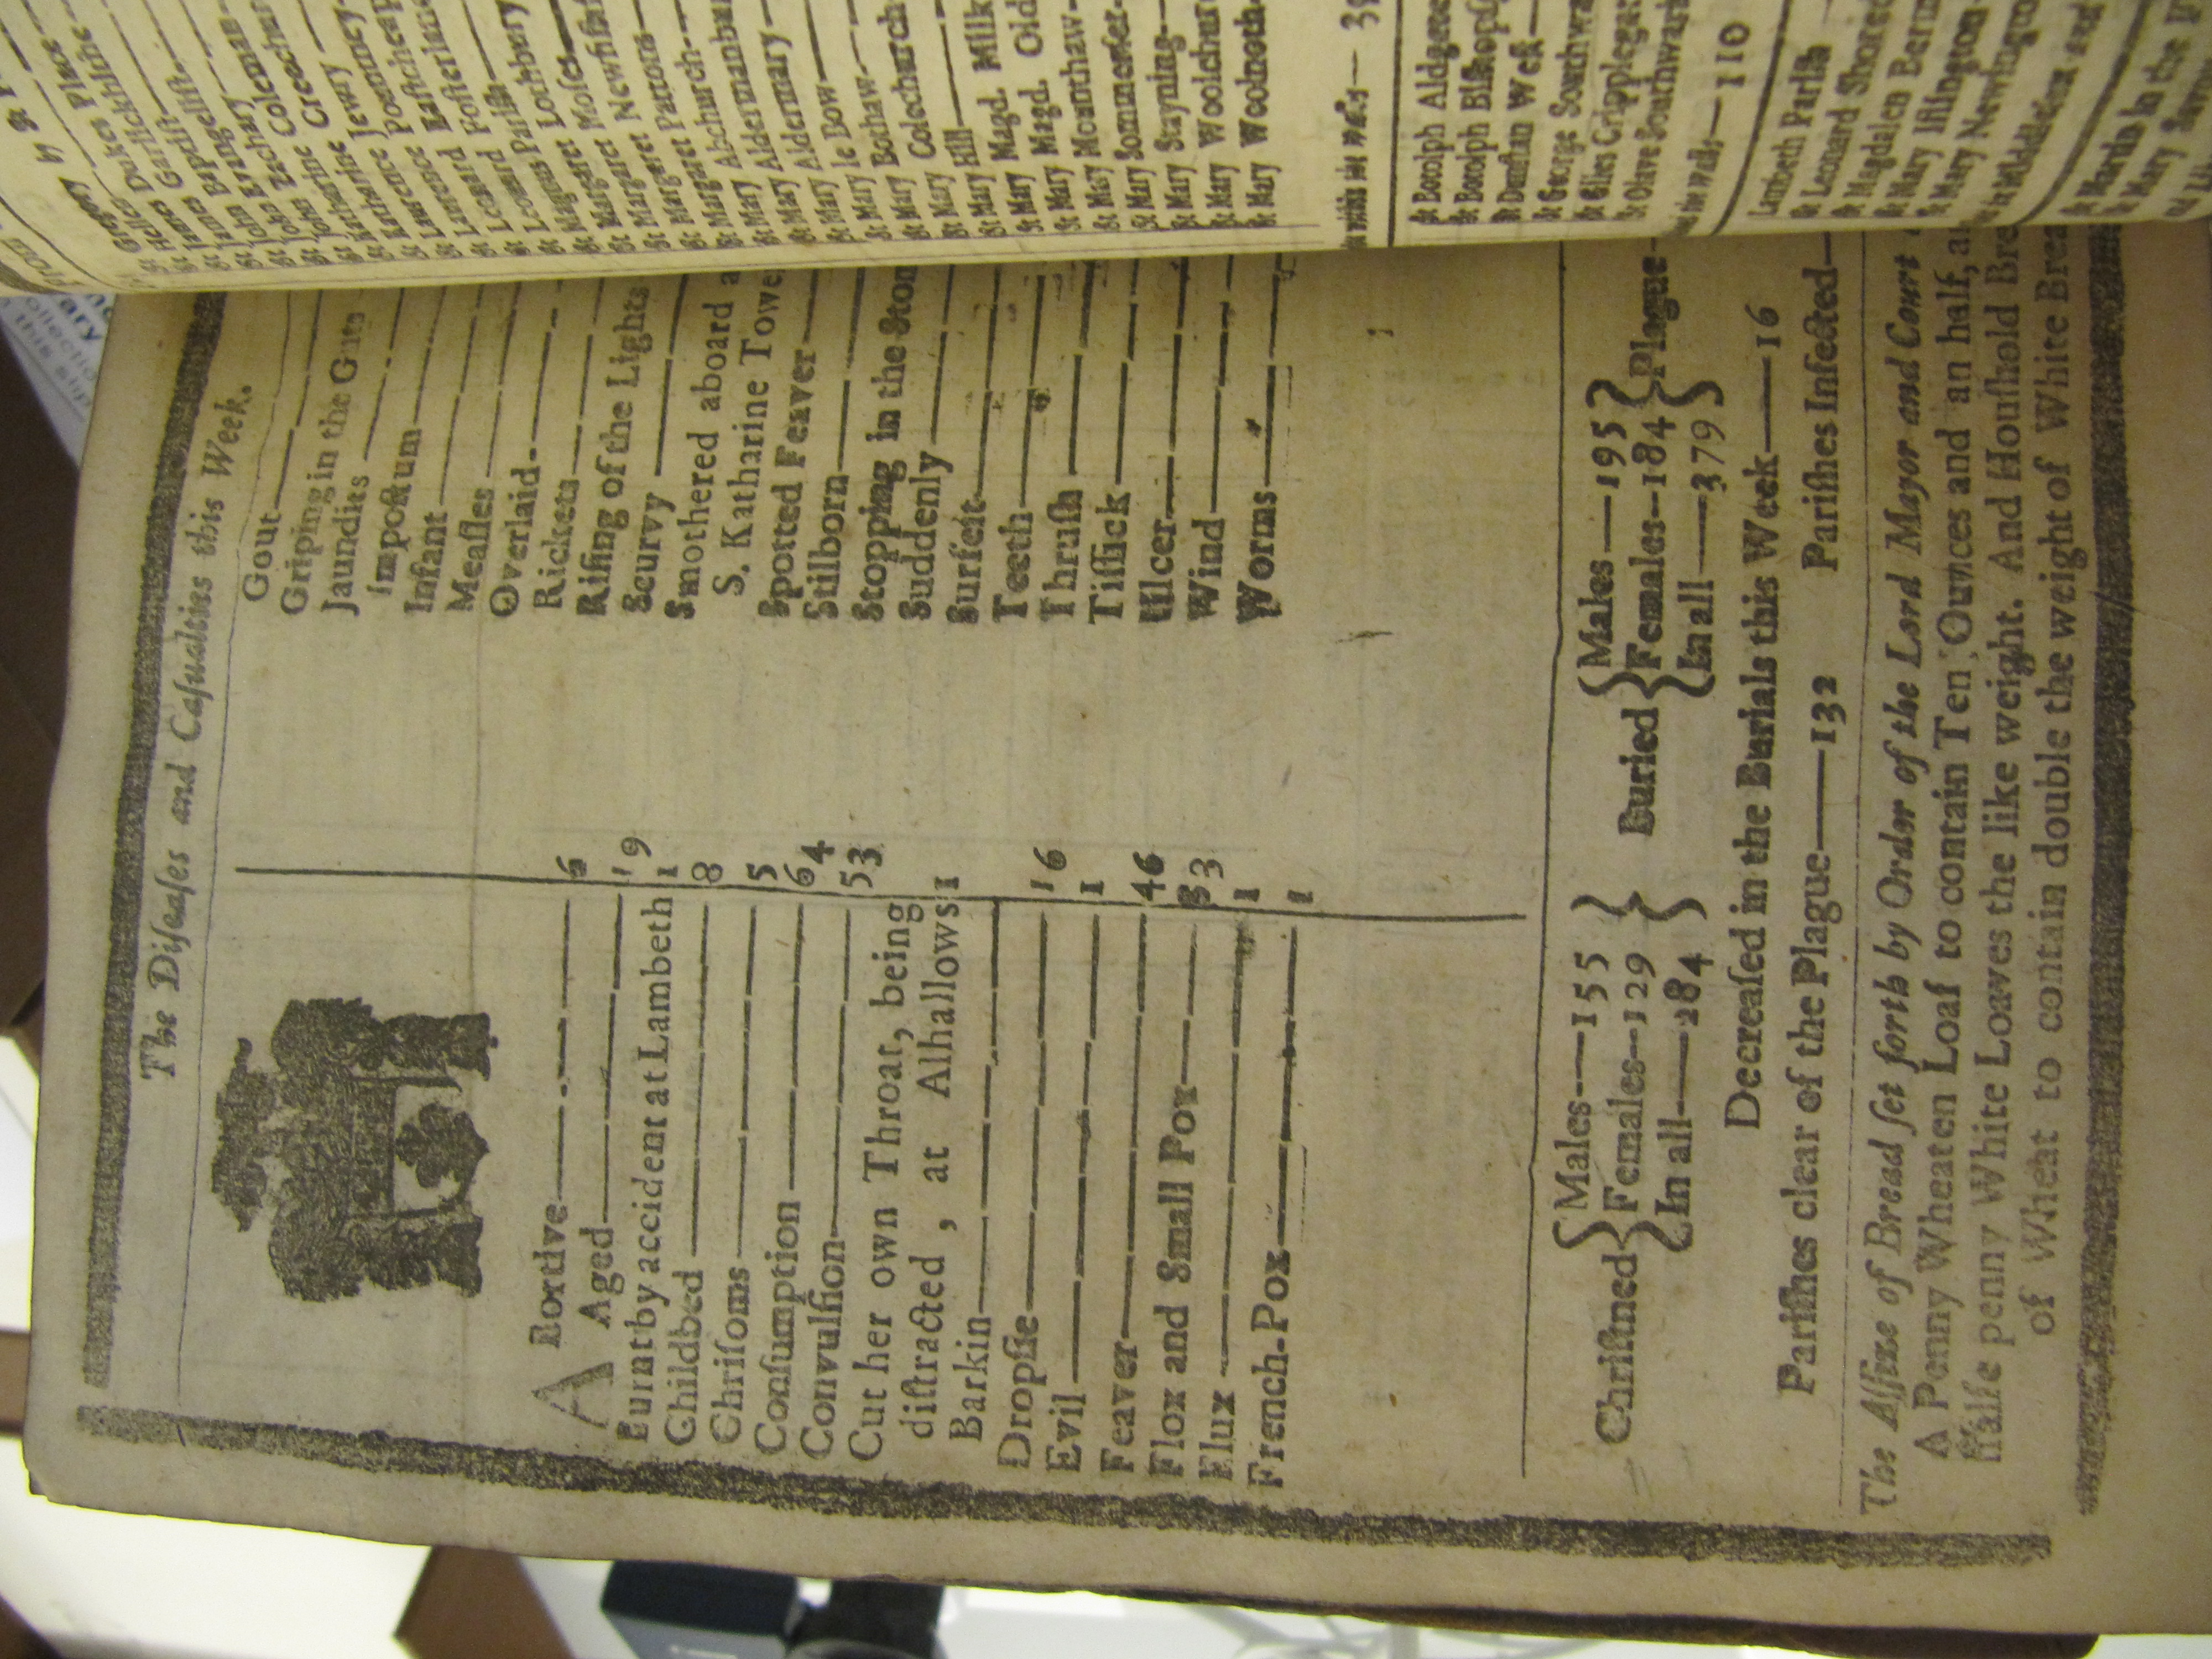 The Diſeaſes and Caſualties this Week.
ABortive 6
Aged 19
Burnt by accident at Lambeth 1
Childbed 8
Chriſoms 5
Conſumption 64
Convulſion 53
Cut her own Throat, being
diſtracted, at Alhallows 1
Barkin
Dropſie 16
Evil 1
Feaver 46
Flox and Small Pox 33
Flux 1
French-Pox 1
Gout
Griping in the Guts
Jaundies
Impoſtum
Infant
Meaſles
Overlaid
Rickets
Riſing of the Lights
Scurvy
Smothered aboard a
S. Katharine Towe
Spotted Feaver
Stilborn
Stopping in the Stom
Suddenly
Surfeit
Teeth
Thruſh
Tiſſick
Ulcer
Wind
Worms
Chriſtned { Males—155 Females—129 In all—284 }
Buried { Males—195 Females—184 In all—379 } Plague—
Decreaſed in the Burials this Week—16
Pariſhes clear of the Plague—132 Pariſhes Infected—
The Aſſize of Bread ſet forth by Order of the Lord Mayor and Court
A Penny Wheaten Loaf to contain Ten Ounces and an half, a
penny White Loaves the like weight. And Houſhold Bre
of Wheat to contain double the weight of White Brea
Dukes Place
St James Garlickhithe
St John Evangeliſt
St John Zachary
St Katharine Coleman
St Katharine Creechur
St Lawrence Jewry
St Lawrence Pountney
St Leonard Eaſtcheap
St Leonard Foſterlane
St Magnus Pariſh
St Margaret Lothbury
St Margaret Moſes
St Margaret Newfiſh
St Margaret Pattons
St Mary Abchurch
St Mary Aldermanbur
St Mary Aldermary
St Mary le Bow
St Mary Bothaw
St Mary Colechurch
St Mary Hill
St Mary Magd. Milk
St Mary Magd. Old
St Mary Mounthaw
St Mary Sommerſet
St Mary Stayning
St Mary Woolchur
St Mary Woolnoth
St Botolph Aldgate
St Botolph Biſhopſ
St Dunſtan Weſt
St George Southwa
St Giles Cripplegat
St Olave Southwark
110
Lambeth Pariſh
St Leonard Shored
St Magdalen Berm
St Mary Iſlington
St Mary Newington
St Martin in the